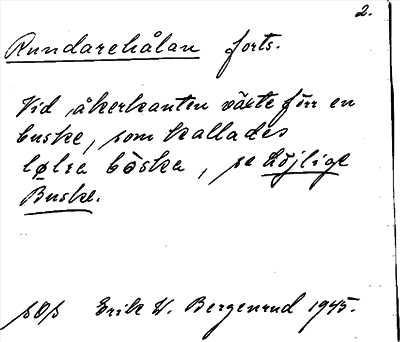 2.
Rundarehålan forts.
Vid åkerkanten växte förr en
buske, som kallades
lølia böska, se Löjlige
Buske.
sOs Erik W. Bergenrud 1945.